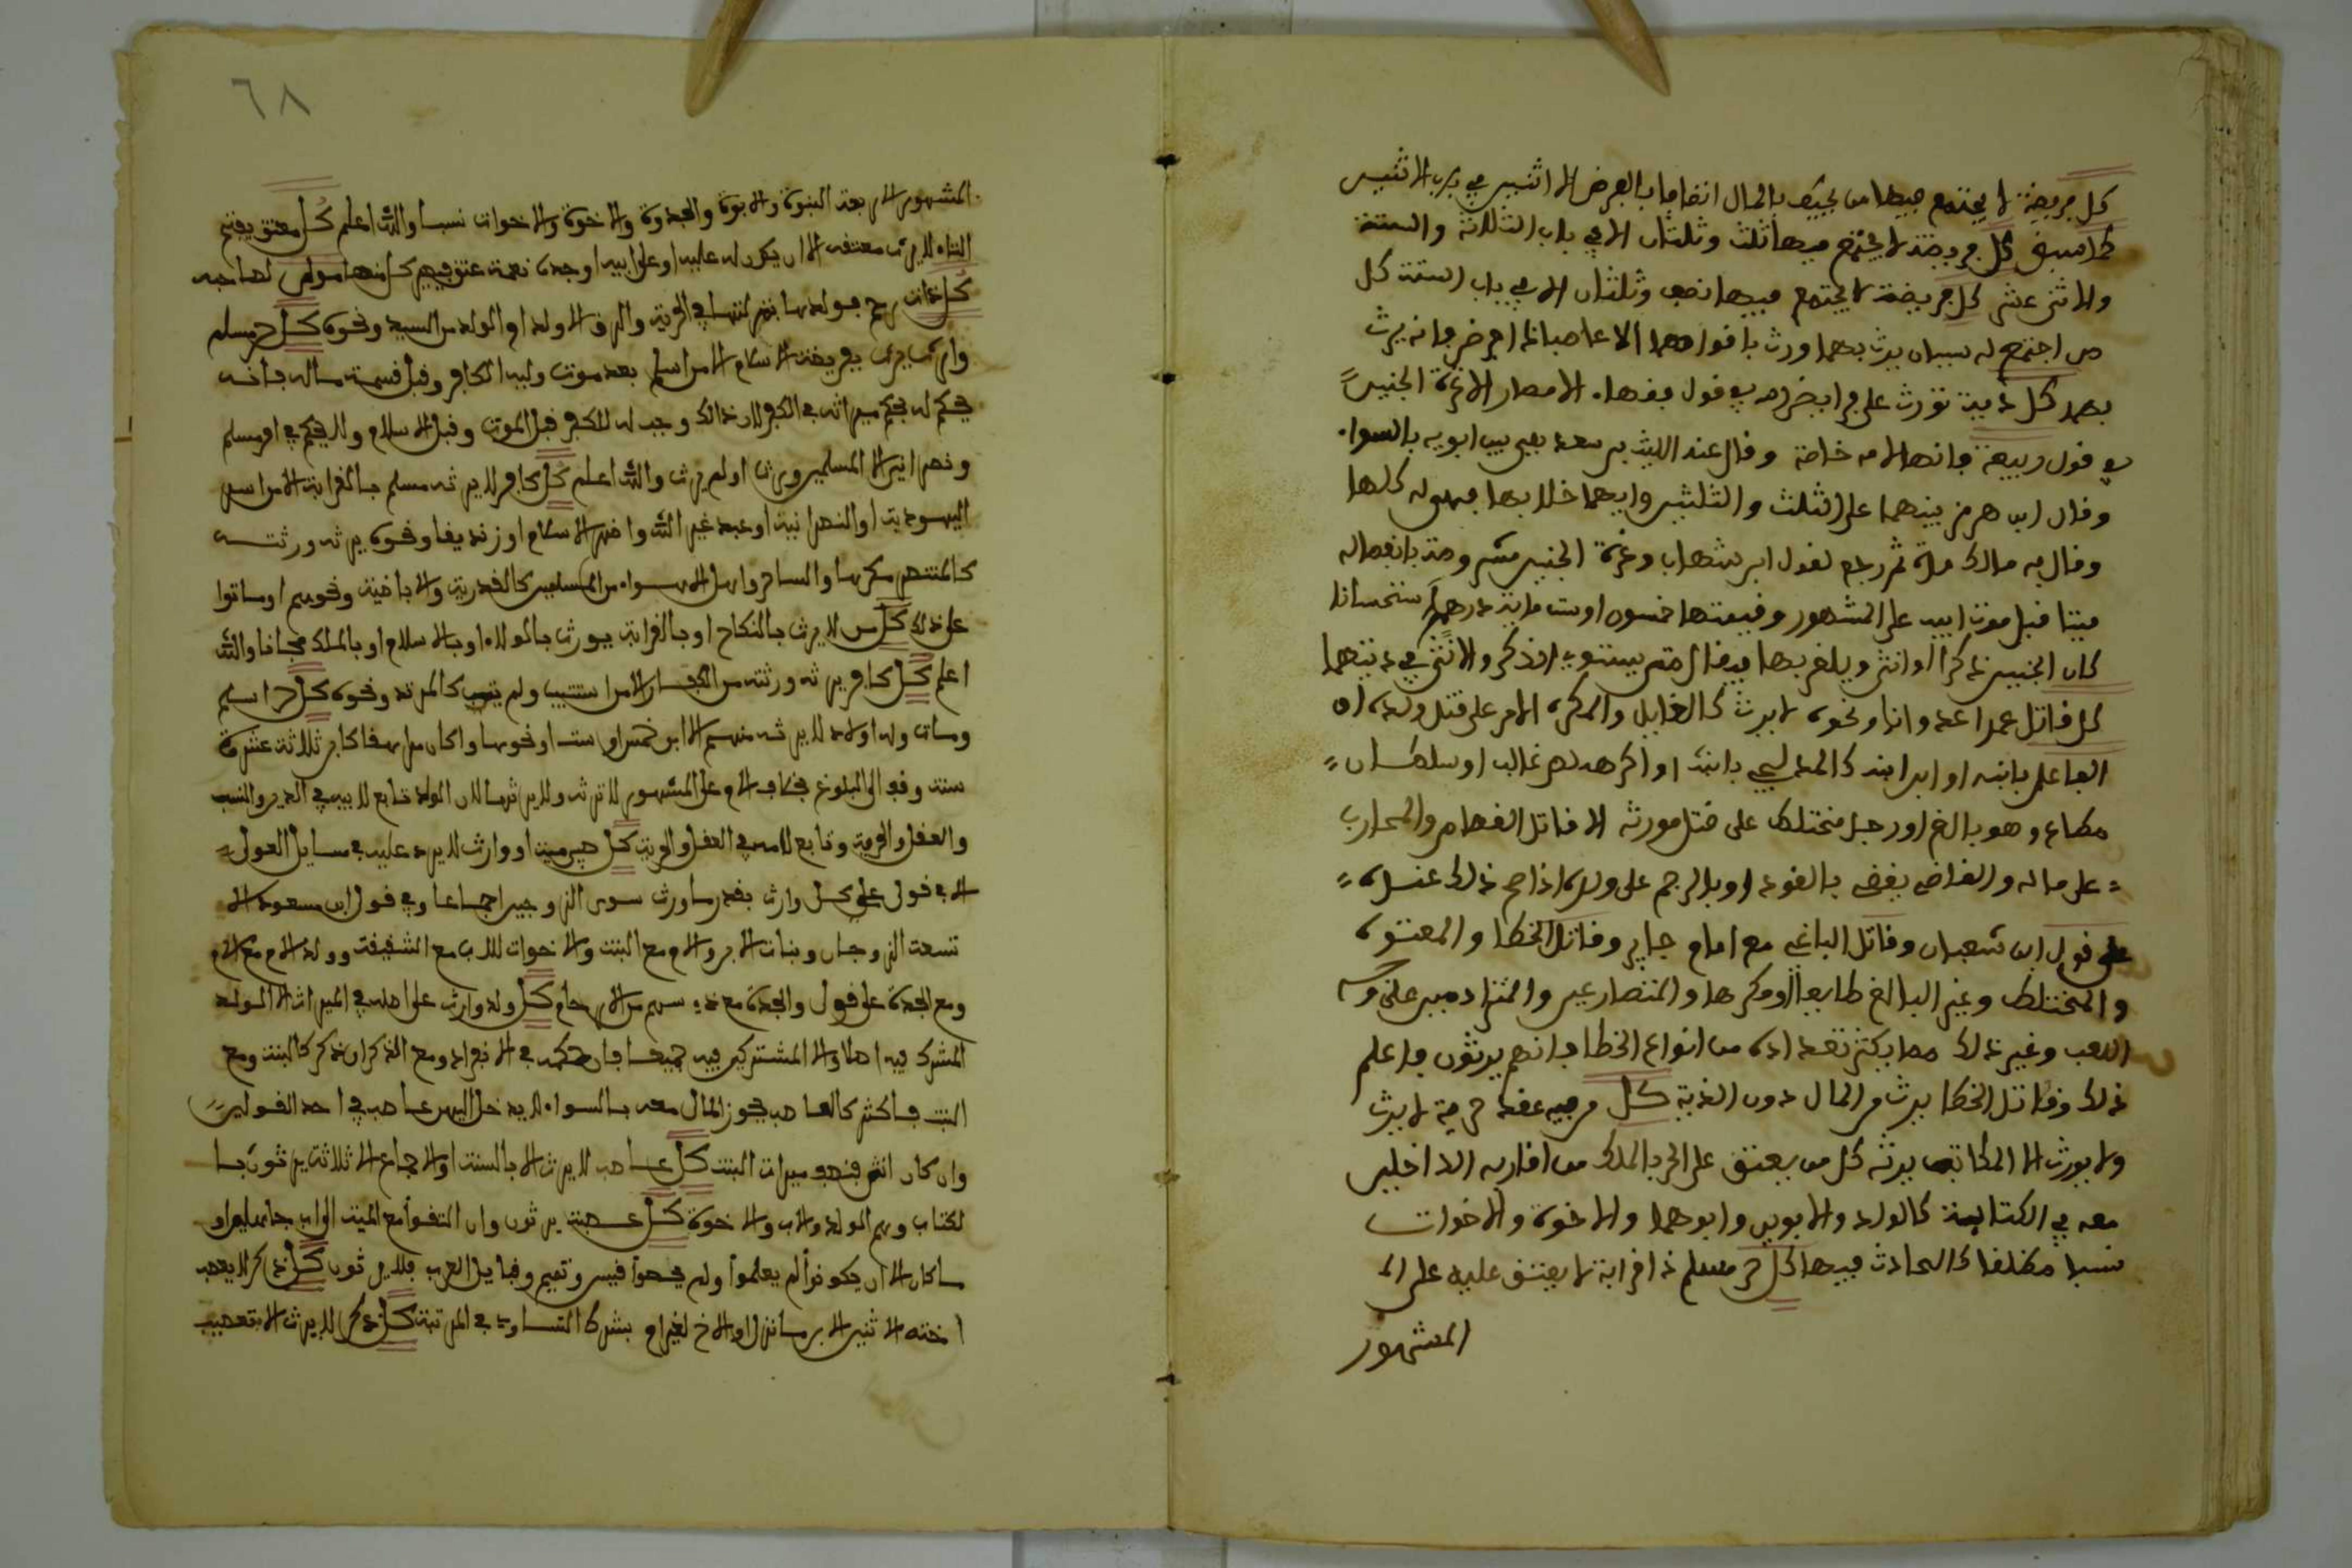 كل فريضة لا يجتمع فيها من يحيط بالمال انضافا بالفرض الا اثنين في باب الاثنين
كما سبق كل فريضة لا يجتمع فيها ثلث وثلثان الا في باب الثلاثة والستة
والاثنى عشر كل فريضة لا يجتمع فيها نصف وثلثان الا في باب الستة كل
من اجتمع له سببان يرث بهما ورث باقواهما الا عاصبا ذا فرض فانه يرث
بهما كل دية تورث على فرايض الله في قول فقهاء الامصار الا غرة الجنين
في قول ربيعة فانها لامه خاصة وقال عند الليث بن سعد هي بين ابويه بالسواء
وقال ابن هرمز بينهما على الثلث والثلثين وايهما خلا بها فهي له كلها
وقال به مالك مرة ثم رجع لقول ابن شهاب وغرة الجنين مشروطة بانفصاله
ميتا قبل موت ابيه على المشهور وقيمتها خمسون او ست ماية درهم استحسانا
كان الجنين ذكرا او انثى ويلغز بها فيقال متى يستوي الذكر والانثى في ديتهما
كل قاتل عمدا عدوانا ونحوه لا يرث كالقاتل والمكره الامر على قتل ولده او
الفاعل بابنه او ابن ابنه كالمدلجي بابنه او اكرهه لص غالب او سلطان
مطاع وهو بالغ او رجل مختلط على قتل مورثه الا قاتل القصاص والمحارب
على ماله والقاضي يقضي بالقود او بالرجم على ولده اذا صح ذلك عنده
على قول ابن شعبان وقاتل الباغي مع امام جاير وقاتل الخطا والمعتوه
والمختلط وغير البالغ طايعا او مكرها والمتصارعين والمترادمين على وجه
اللعب وغير ذلك مما يكثر تعداده من انواع الخطا فانهم يرثون فاعلم
ذلك وقاتل الخطا يرث من المال دون الدية كل من فيه عقد حرية لا يرث
ولا يورث الا المكاتب يرثه كل من يعتق على الحر بالملك من اقاربه الداخلين
معه في الكتابة كالولد والابوين وابوهما والاخوة والاخوات
نسبا مطلقا كالحادث فيها كل حر مسلم ذا قرابة لا يعتق عليه على ال
المشهور
٦٨
المشهور الاربعة البنوة والابوة والجدودة والاخوة والاخوات نسبا والله اعلم كل معتق بفتح
التاء لا يرث معتقه الا ان يكون له عليه او على ابيه او جده نعمة عتق فيهم كل منهما مولى لصاحبه
كل ذات رحم فولدها بمنزلتها في الحرية والرق الا ولد ام الولد من السيد ونحوه كل حر مسلم
وارث يرث بفريضة الاسلام الا من اسلم بعد موت وليه الكافر وقبل قسمة ماله فانه
يحكم له بحكم ميراثه في الكفر لان ذلك وجب له للكفر قبل الموت وقبل الاسلام ولا يحكم في
ونصرانيين الا المسلمين ورث او لم يرث والله اعلم كل كافر لا يرثه مسلم بالقرابة الا من اسر
اليهودية او النصرانية او عبد غير الله واظهر الاسلام او زنديقا ونحوه يرثه ورثته
كالمتهم بكرها والساحر واهل الاهواء من المسلمين كالقدرية والاباضية ونحوهم او ماتوا
على ذلك كل من لا يرث بالنكاح او بالقرابة يورث بالولاء او بالاسلام او بالملك مجانا والله
اعلم كل كافر يرثه ورثته من الكفار الا من استتيب ولم يتب كالمرتد ونحوه كل حر اسلم
ومات وله اولاد لا يرثه منهم الا ابن خمس او ست او نحوها وان كان مراهقا كابن ثلاثة عشرة
سنة وقف الى البلوغ بخلاف الام على المشهور لا ترثه ولا يرثها لان الولد تابع لابيه في الدين والنسب
والعقل والحرية وتابع لامه في العقل والحرية كل جهة او وارث لا يرد عليه في مسايل العول
الا في قول علي كل وارث بقدر ما ورث سوى الزوجين اجماعا وفي قول ابن مسعود الا
تسعة الزوجان وبنات الابن والام مع البنت والاخوات للاب مع الشقيقة وولد الام مع الام
ومع الجدة على قول والجدة مع ذي سهم من الارحام كل ولد وارث على اصله في الميراث الا الولد
المشرك فيه اصلا والا المشتركين فيه جميعا فان حكمه في الانفراد ومع الذكر ان ذكر كالبنت ومع
البنت فاكثر كالعاصب يحوز المال معه بالسواء لا يدخل اليهن عاصب في احد القولين
وان كان انثى فنصف ميراث البنت كل عاصب لا يرث الا بالسنة او الاجماع الا ثلاثة يرثون با
لكتاب وهم الولد والاب والاخوة كل عصبة يرثون وان التقوا مع الميت الى اب جاهلي او
ما كان الا ان يكونوا لم يعلموا ولم يحصوا كقيس وتميم وقبايل العرب فلا يرثون كل ذكر لا يعصب
اخته الا اثنين الابن ما نزل والاخ لغير ام بشرط التساوي في المرتبة كل ذكر لا يرث الا بتعصيب